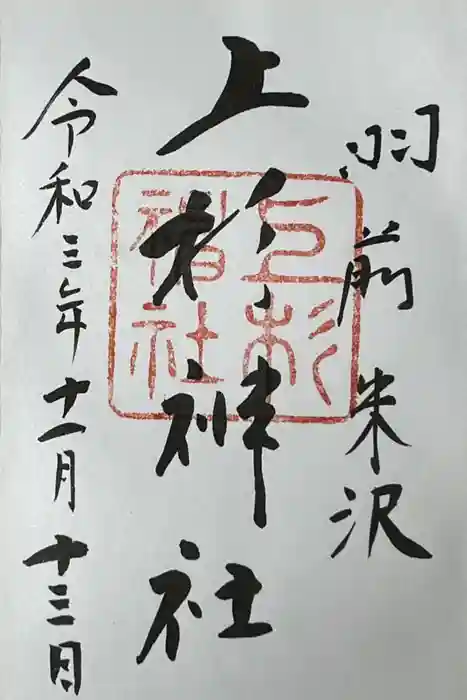 羽前 米沢
上杉神社
上杉
神社
令和三年十一月十三日